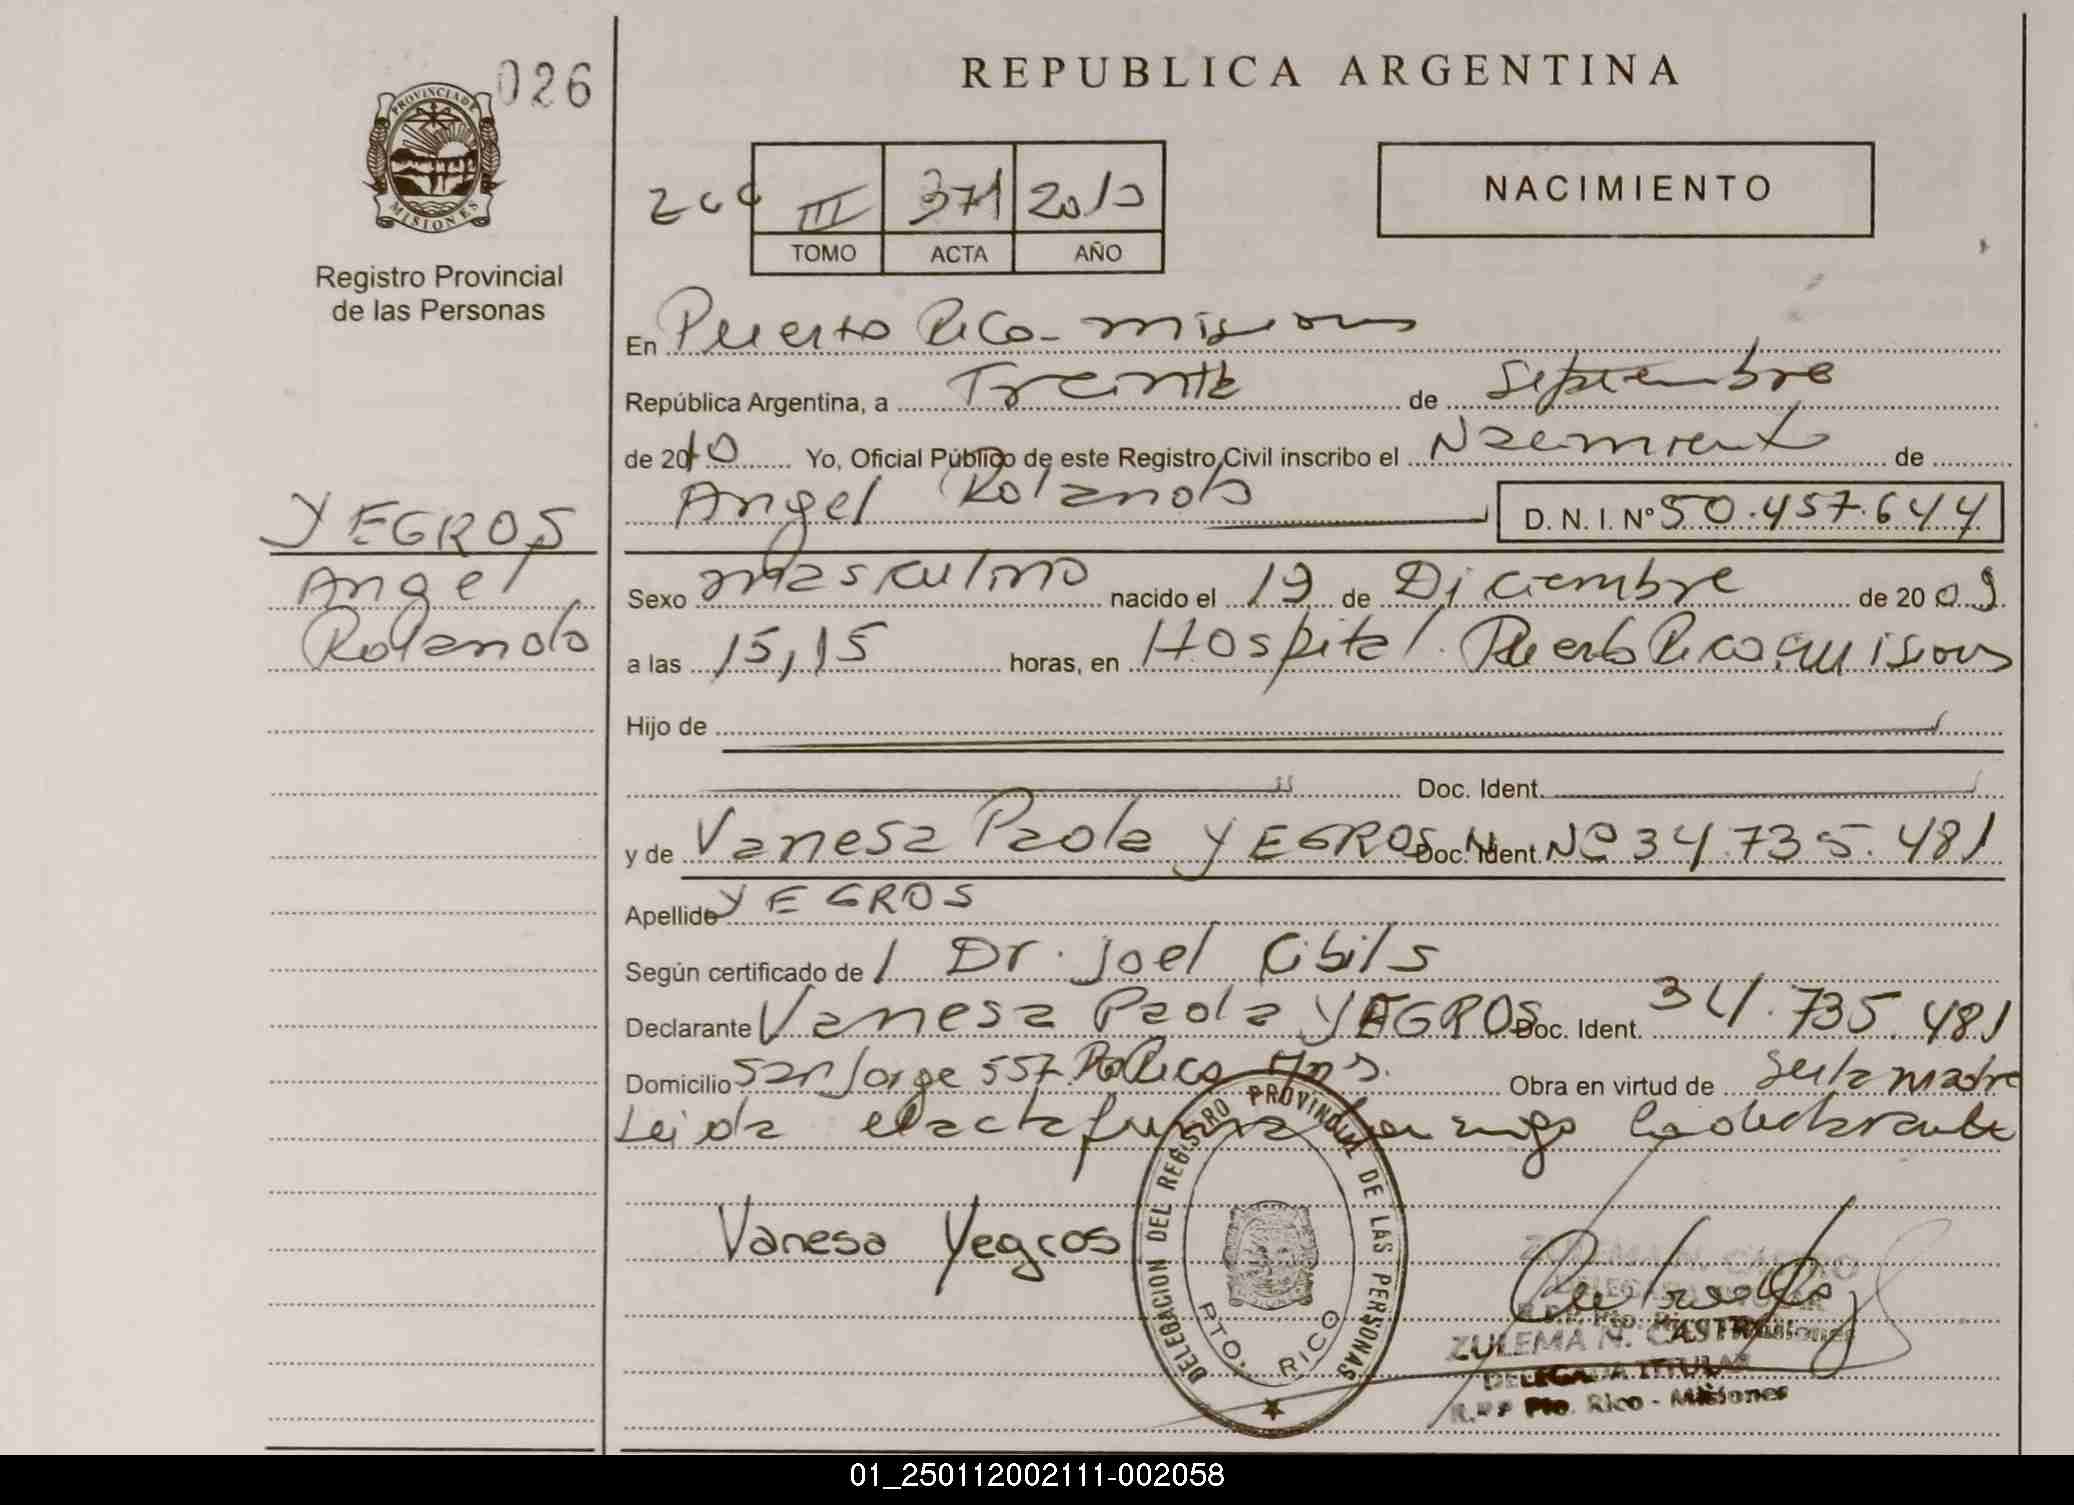 026
REPUBLICA ARGENTINA
PROVINCIA DE MISIONES
Registro Provincial
de las Personas
III 371 2010
TOMO ACTA AÑO
NACIMIENTO
En Puerto Rico - misiones
República Argentina, a Treinta de Septiembre
de 2010 Yo, Oficial Público de este Registro Civil inscribo el Nacimiento de
Angel Rolando D. N. I. Nº 50.457.644
YEGROS
Angel
Rolando
Sexo masculino nacido el 19 de Diciembre de 2009
a las 15,15 horas, en Hospital. Puerto Rico, misiones
Hijo de
Doc. Ident.
y de Vanesa Paola YEGROS Doc. Ident. 34.735.481
Apellido YEGROS
Según certificado de Dr. Joel Cibils
Declarante Vanesa Paola YEGROS Doc. Ident. 34.735.481
Domicilio San Jorge 557. Pto Rico Mns. Obra en virtud de ser la madre
Leida el acta firma conmigo la declarante
Vanesa Yegros
DELEGACION DEL REGISTRO PROVINCIAL DE LAS PERSONAS
PTO. RICO
ZULEMA N. CASTRO
DELEGADA TITULAR
R.P.P. Pto. Rico - Misiones
ZULEMA N. CASTRO
DELEGADA TITULAR
R.P.P Pto. Rico - Misiones
01_250112002111-002058